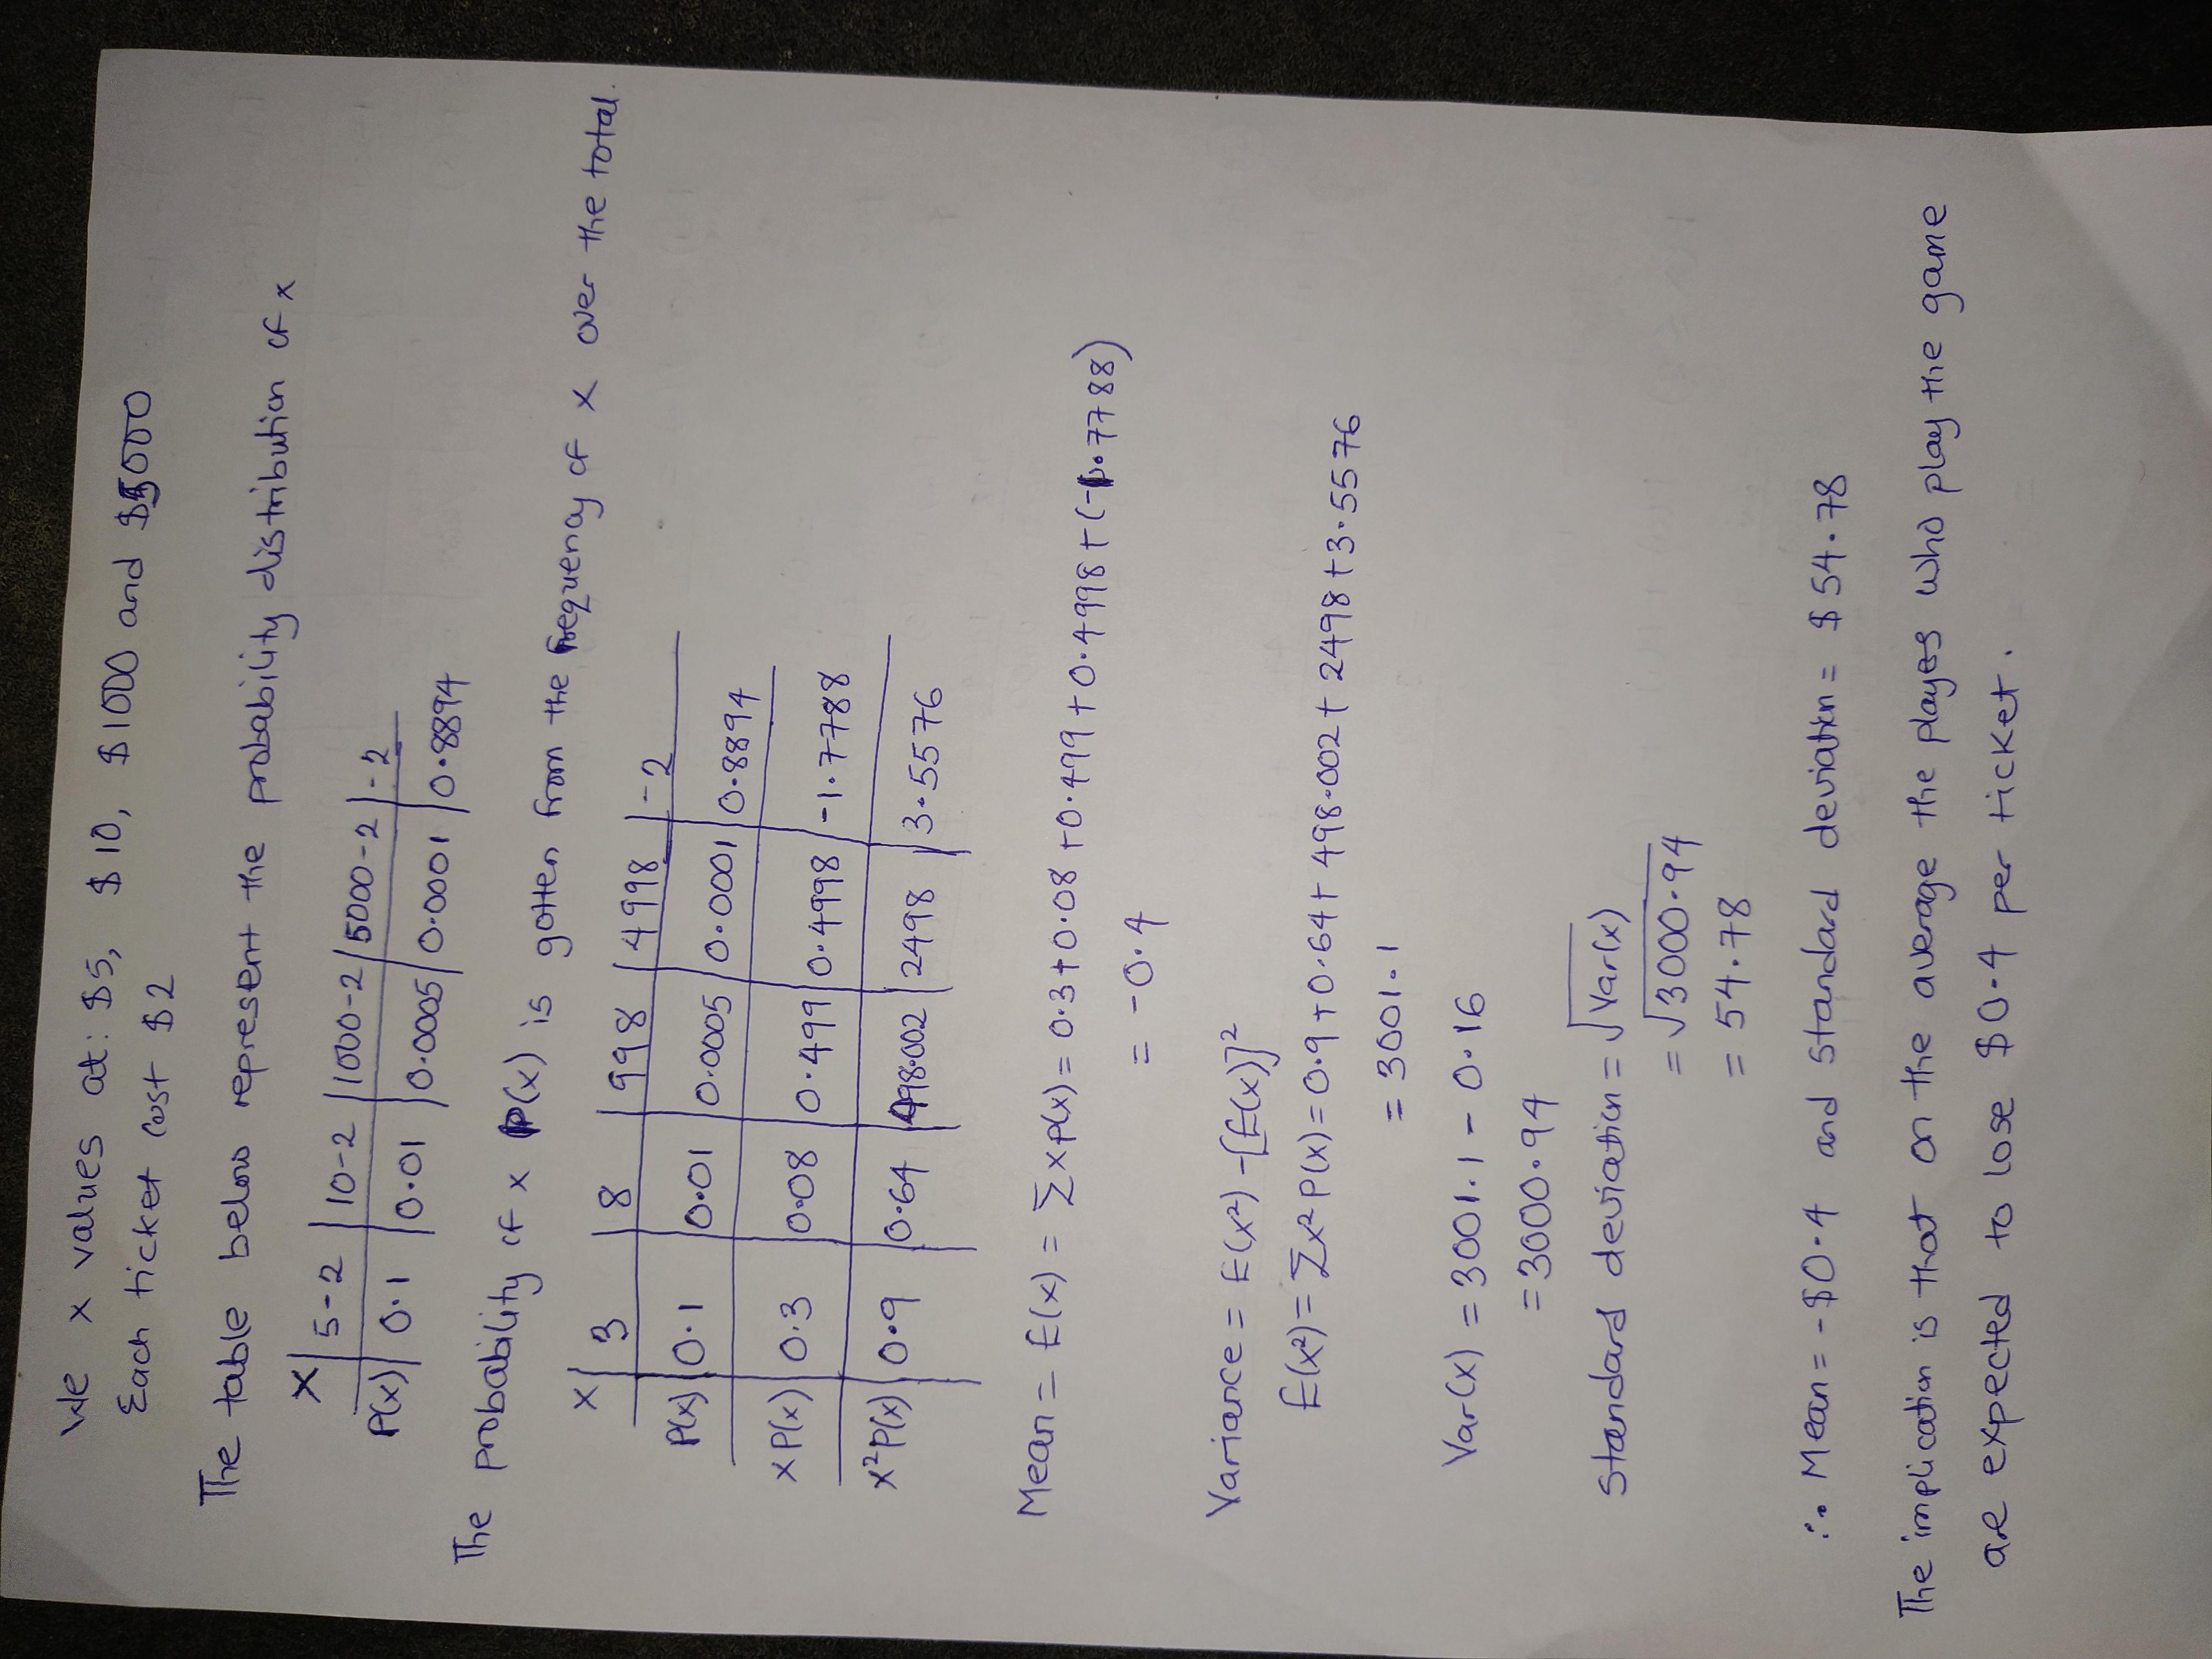 We x values at: $5, $10, $1000 and $5000
Each ticket cost $2
The table below represent the probability distribution of x
X | 5-2 | 10-2 | 1000-2 | 5000-2 | -2
P(x) | 0.1 | 0.01 | 0.0005 | 0.0001 | 0.8894
The probability of x P(x) is gotten from the frequency of x over the total.
X | 3 | 8 | 998 | 4998 | -2
P(x) | 0.1 | 0.01 | 0.0005 | 0.0001 | 0.8894
xP(x) | 0.3 | 0.08 | 0.499 | 0.4998 | -1.7788
x²P(x) | 0.9 | 0.64 | 498.002 | 2498 | 3.5576
Mean = E(x) = Σxp(x) = 0.3+0.08+0.499+0.4998+(-1.7788)
= -0.4
Variance = E(x²)-[E(x)]²
E(x²) = Σx²P(x) = 0.9+0.64+498.002+2498+3.5576
= 3001.1
Var(x) = 3001.1 - 0.16
= 3000.94
Standard deviation = √Var(x)
= √3000.94
= 54.78
∴ Mean = -$0.4 and standard deviation = $54.78
The implication is that on the average the playes who play the game
are expected to lose $0.4 per ticket.